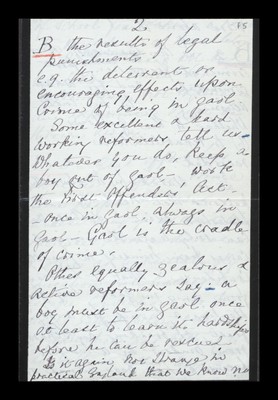 2
B the results of legal
punishments
e.g. the deterrent or
encouraging effects upon
Crime of being in gaol
Some excellent & hard
working reformers tell us
Whatever you do, keep a
boy out of gaol - work
the First Offenders' Act -
- once in gaol always in
Gaol - Gaol is the cradle
of crime.
Other equally zealous &
active reformers say - a
boy must be in gaol once
at least to learn its hardships
before he can be rescued -
Is it again not strange in
practical England that we know no